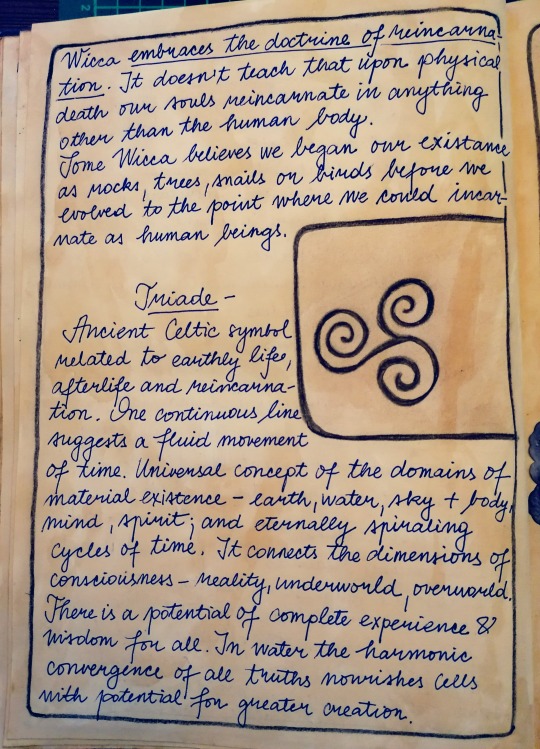 Wicca embraces the doctrine of reincarna-
tion. It doesn't teach that upon physical
death our souls reincarnate in anything
other than the human body.
Some Wicca believes we began our existance
as rocks, trees, snails or birds before we
evolved to the point where we could incar-
nate as human beings.
Triade -
Ancient Celtic symbol
related to earthly life,
afterlife and reincarna-
tion. One continuous line
suggests a fluid movement
of time. Universal concept of the domains of
material existence - earth, water, sky + body,
mind, spirit; and eternally spiraling
cycles of time. It connects the dimensions of
consciousness - reality, underworld, overworld.
There is a potential of complete experience &
wisdom for all. In water the harmonic
convergence of all truths nourishes cells
with potential for greater creation.